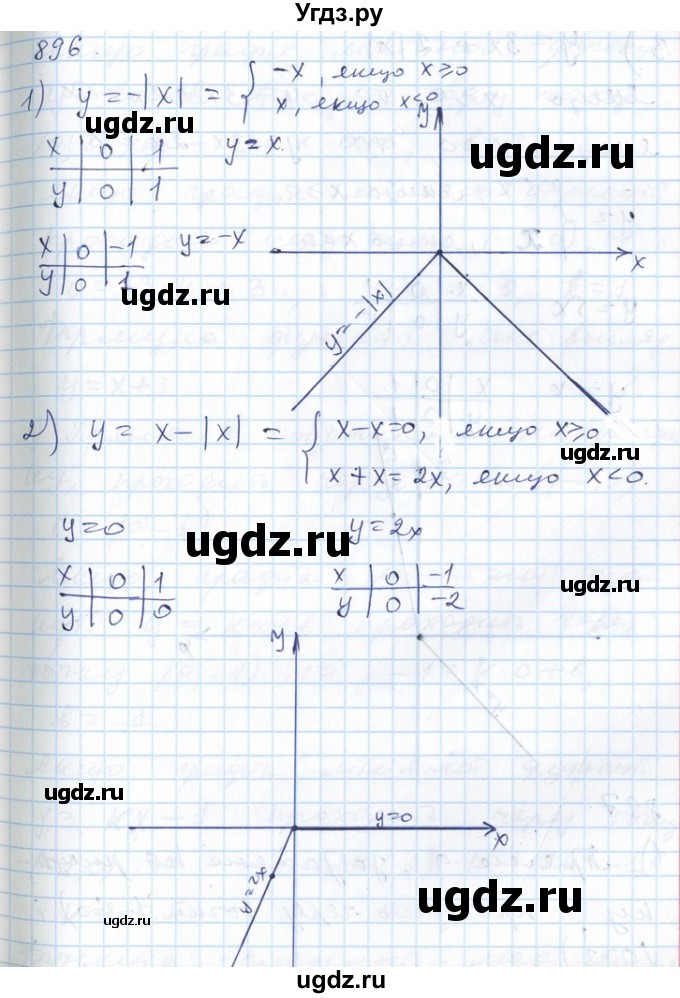 Угдз.ру
896.
1) y = -|x| = { -x, якщо x ≥ 0
x, якщо x < 0
ugdz.ru
ugdz.ru
x | 0 | 1
y | 0 | 1
y = x.
y
x | 0 | -1
y | 0 | 1
y = -x
ugdz.ru
x
y = -|x|
2) y = x - |x| = { x - x = 0, якщо x ≥ 0
x + x = 2x, якщо x < 0.
ugdz.ru
y = 0
y = 2x
ugdz.ru
x | 0 | 1
y | 0 | 0
x | 0 | -1
y | 0 | -2
ugdz.ru
y
ugdz.ru
y = 0
x
y = 2x
ugdz.ru
ugdz.ru
ugdz.ru